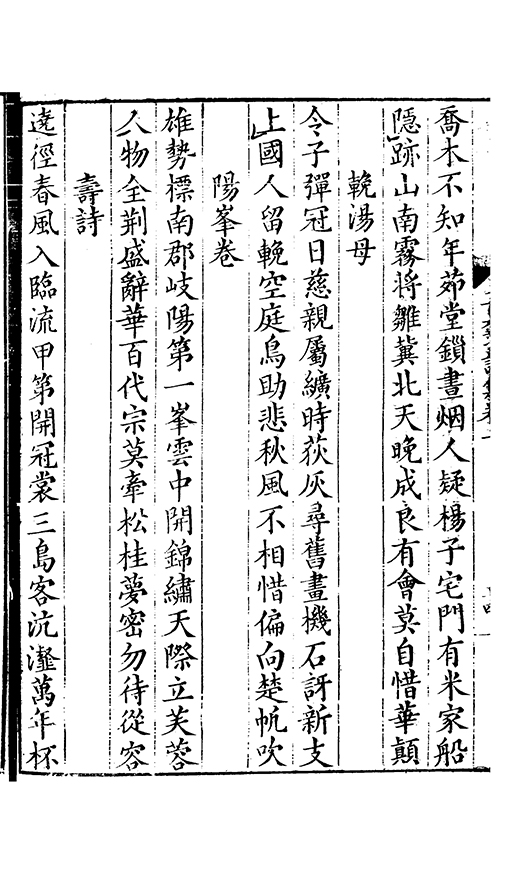 喬木不知年茆堂鎖晝烟人疑楊子宅門有米家船
隱跡山南霧將雛冀北天晚成良有會莫自惜華顛
輓湯母
令子彈冠日慈親屬纊時荻灰尋舊畫機石訝新支
上國人留輓空庭鳥助悲秋風不相惜偏向楚帆吹
陽峯卷
雄勢標南郡岐陽第一峯雲中開錦繡天際立芙蓉
人物全荆盛辭華百代宗莫牽松桂夢密勿待從容
壽詩
遶徑春風入臨流甲第開冠裳三島客沆瀣萬年杯